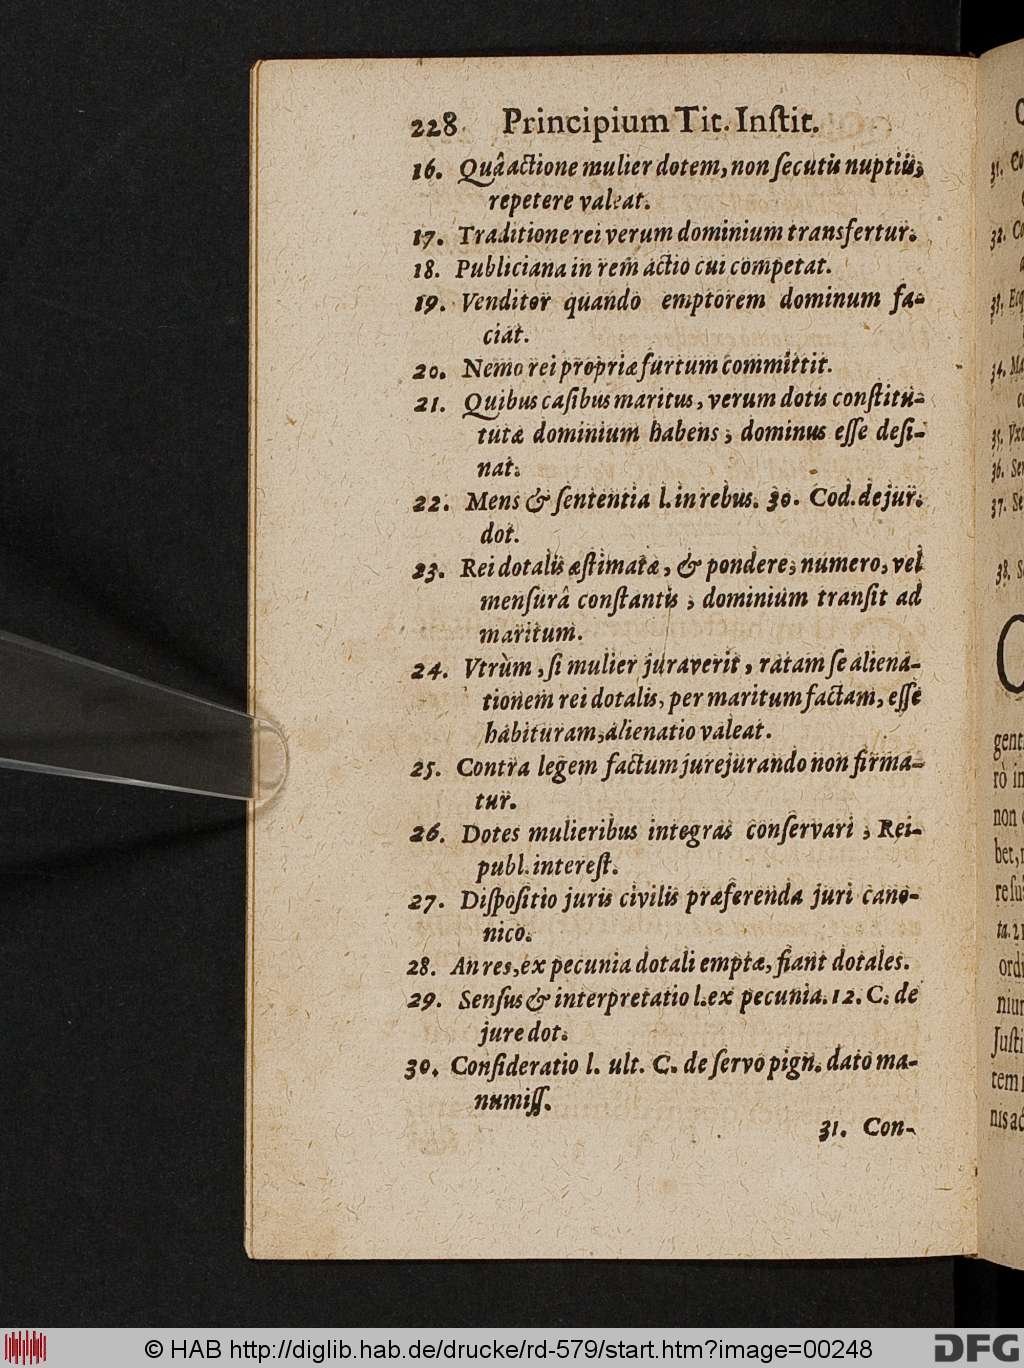 228 Principium Tit. Inſtit.
16. Quâ actione mulier dotem, non ſecutis nuptiis,
repetere valeat.
17. Traditione rei verum dominium transfertur.
18. Publiciana in rem actio cui competat.
19. Venditor quando emptorem dominum fa-
ciat.
20. Nemo rei propriæ furtum committit.
21. Quibus caſibus maritus, verum dotis conſtitu-
tutæ dominium habens, dominus eſſe deſi-
nat.
22. Mens & ſententia l. in rebus. 30. Cod. de jur.
dot.
23. Rei dotalis æſtimatæ, & pondere, numero, vel
menſurâ conſtantis, dominium tranſit ad
maritum.
24. Vtrùm, ſi mulier juraverit, ratam ſe aliena-
tionem rei dotalis, per maritum factam, eſſe
habituram, alienatio valeat.
25. Contra legem factum jurejurando non firma-
tur.
26. Dotes mulieribus integras conſervari, Rei-
publ. intereſt.
27. Diſpoſitio juris civilis præferenda juri cano-
nico.
28. An res, ex pecunia dotali emptæ, fiant dotales.
29. Senſus & interpretatio l. ex pecunia. 12. C. de
jure dot.
30. Conſideratio l. ult. C. de ſervo pign. dato ma-
numiſſ.
31. Con-
31. Co
32. Co
33.
34. Ma
35. Vx
36. Se
37. Se
38. S
C
gent
rò in
non
bet,
re ſu
ta. 21
ordi
niur
Juſti
tem
nis ad
© HAB http://diglib.hab.de/drucke/rd-579/start.htm?image=00248
DFG